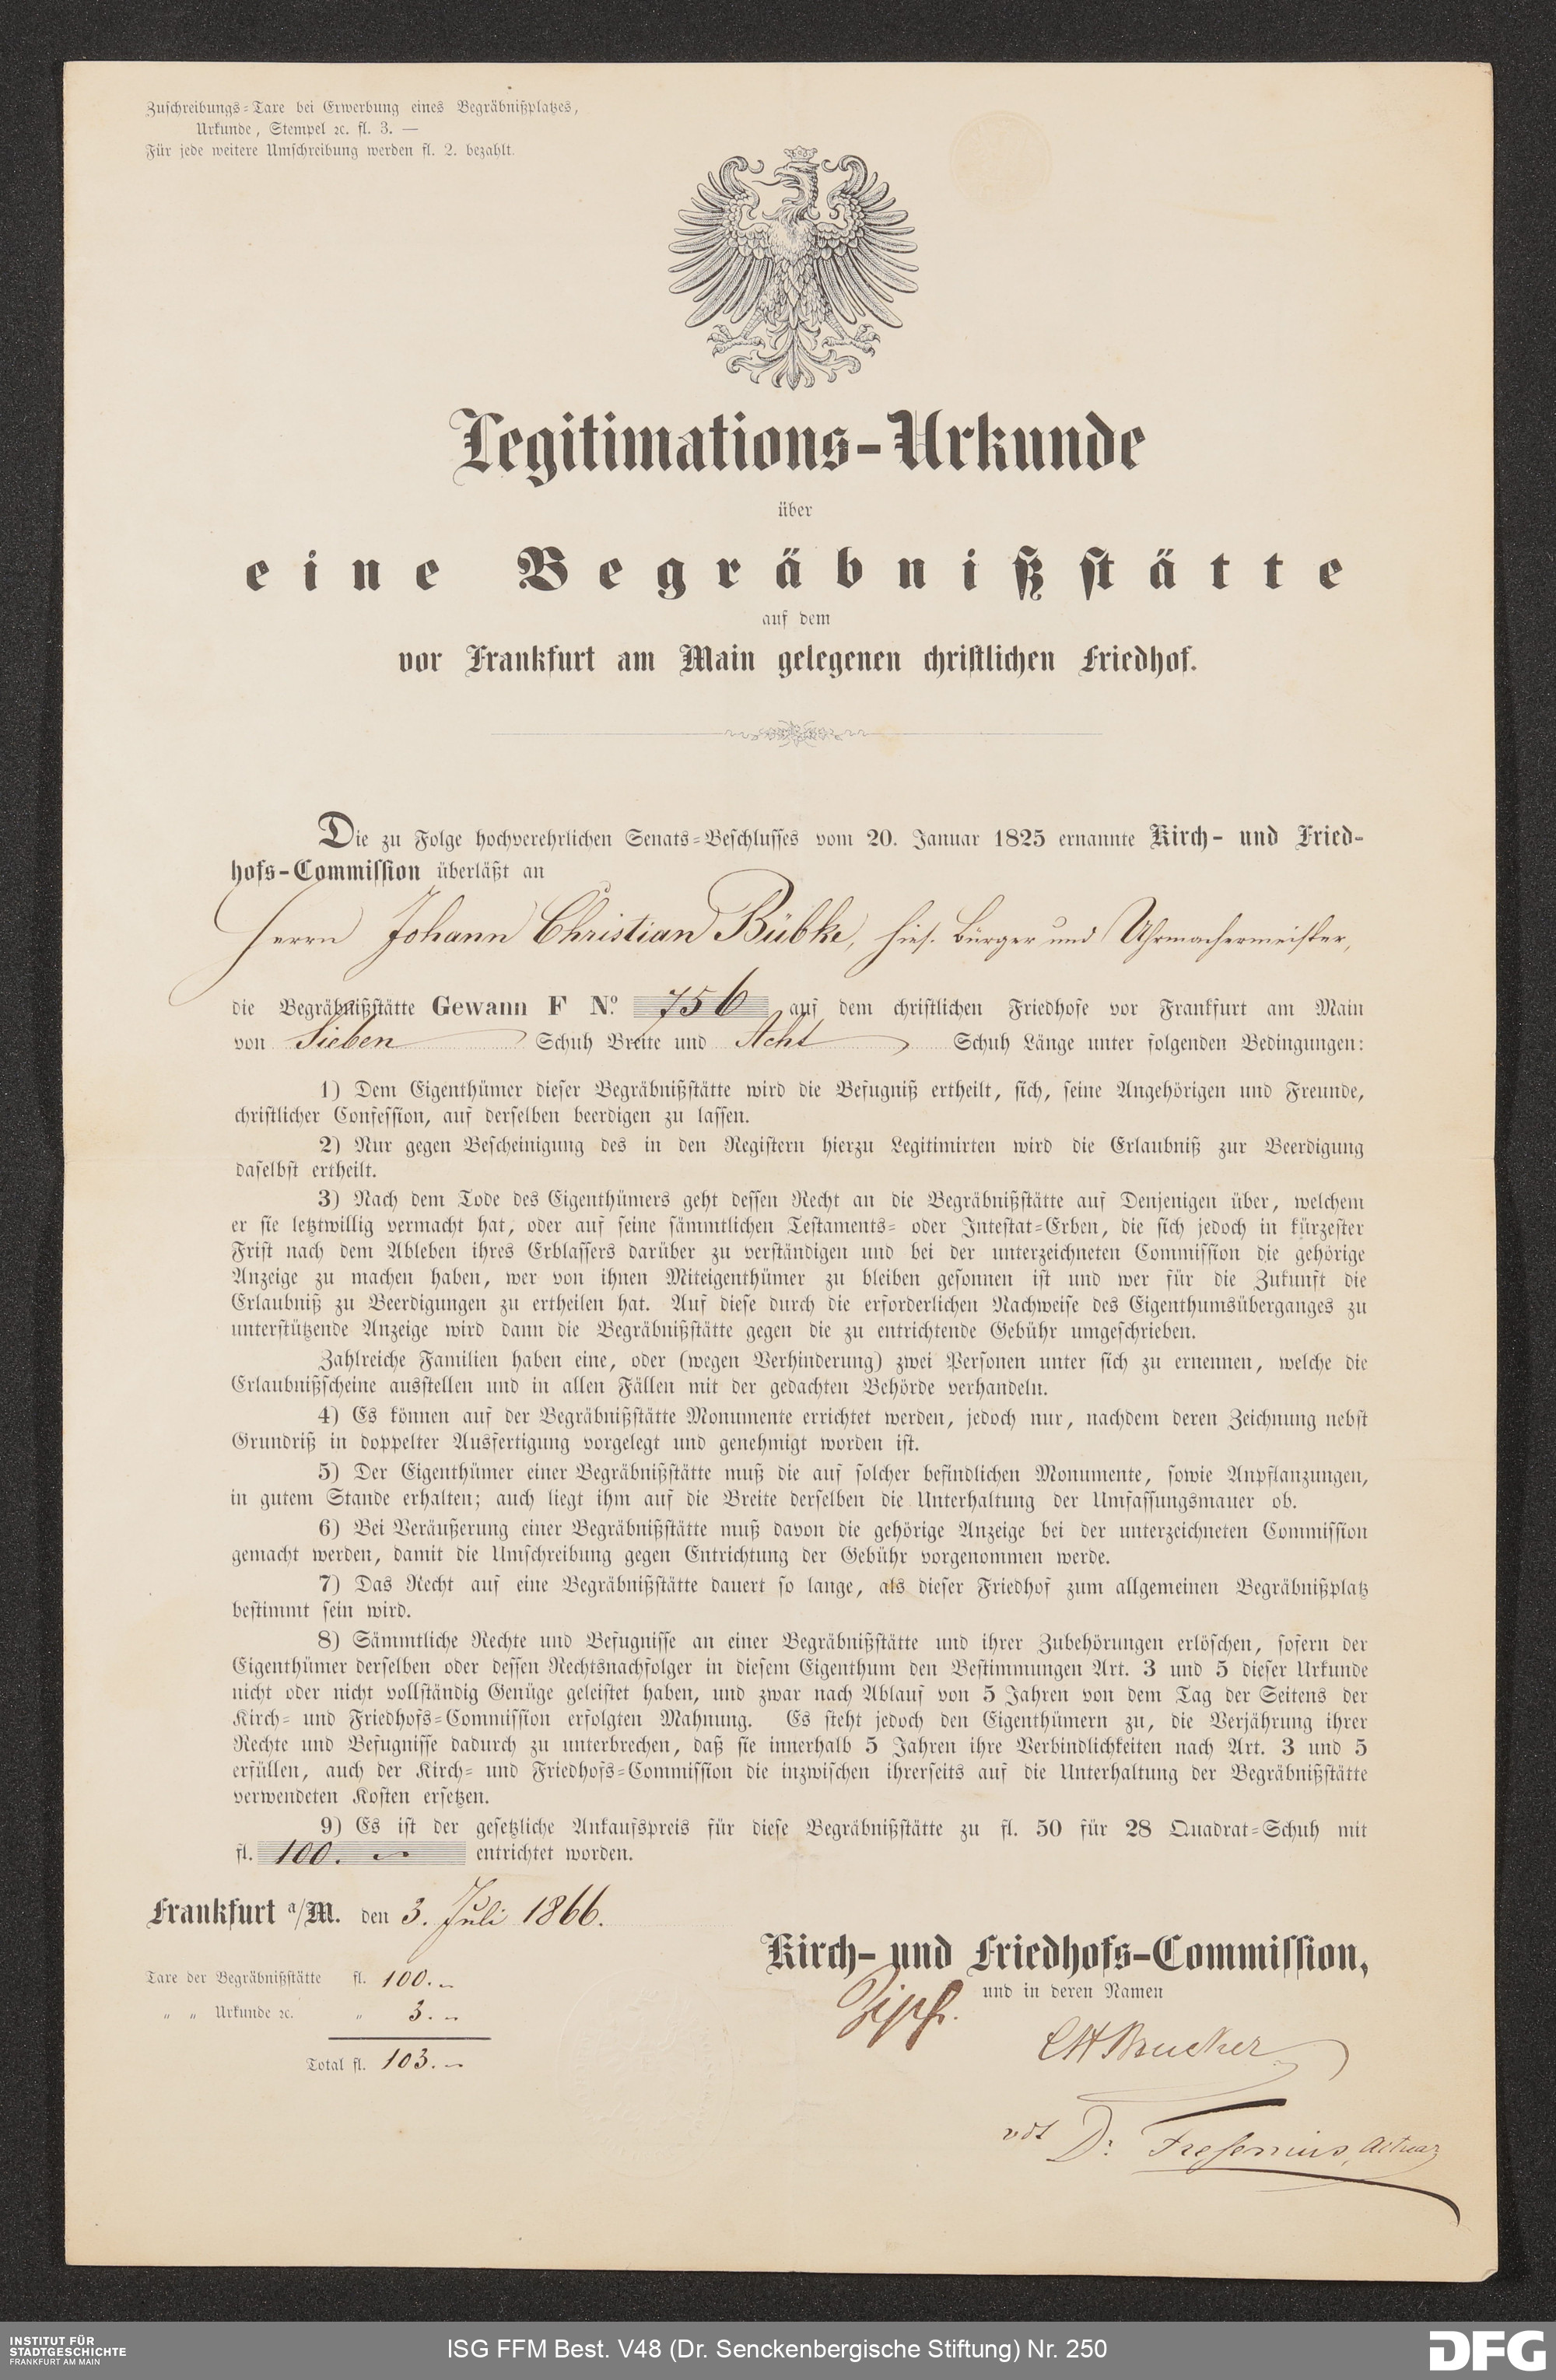 Zuschreibungs-Taxe bei Erwerbung eines Begräbnißplatzes,
Urkunde, Stempel ꝛc. fl. 3. —
Für jede weitere Umschreibung werden fl. 2. bezahlt.
Legitimations-Urkunde
über
eine Begräbnißstätte
auf dem
vor Frankfurt am Main gelegenen christlichen Friedhof.
Die zu Folge hochverehrlichen Senats-Beschlusses vom 20. Januar 1825 ernannte Kirch- und Fried-
hofs-Commission überläßt an
Herrn Johann Christian Bübke, hies. Bürger und Uhrmachermeister,
die Begräbnißstätte Gewann F No. 756 auf dem christlichen Friedhofe vor Frankfurt am Main
von Sieben Schuh Breite und Acht Schuh Länge unter folgenden Bedingungen:
1) Dem Eigenthümer dieser Begräbnißstätte wird die Befugniß ertheilt, sich, seine Angehörigen und Freunde,
christlicher Confession, auf derselben beerdigen zu lassen.
2) Nur gegen Bescheinigung des in den Registern hierzu Legitimirten wird die Erlaubniß zur Beerdigung
daselbst ertheilt.
3) Nach dem Tode des Eigenthümers geht dessen Recht an die Begräbnißstätte auf Denjenigen über, welchem
er sie letztwillig vermacht hat, oder auf seine sämmtlichen Testaments- oder Intestat-Erben, die sich jedoch in kürzester
Frist nach dem Ableben ihres Erblassers darüber zu verständigen und bei der unterzeichneten Commission die gehörige
Anzeige zu machen haben, wer von ihnen Miteigenthümer zu bleiben gesonnen ist und wer für die Zukunft die
Erlaubniß zu Beerdigungen zu ertheilen hat. Auf diese durch die erforderlichen Nachweise des Eigenthumsüberganges zu
unterstützende Anzeige wird dann die Begräbnißstätte gegen die zu entrichtende Gebühr umgeschrieben.
Zahlreiche Familien haben eine, oder (wegen Verhinderung) zwei Personen unter sich zu ernennen, welche die
Erlaubnißscheine ausstellen und in allen Fällen mit der gedachten Behörde verhandeln.
4) Es können auf der Begräbnißstätte Monumente errichtet werden, jedoch nur, nachdem deren Zeichnung nebst
Grundriß in doppelter Ausfertigung vorgelegt und genehmigt worden ist.
5) Der Eigenthümer einer Begräbnißstätte muß die auf solcher befindlichen Monumente, sowie Anpflanzungen,
in gutem Stande erhalten; auch liegt ihm auf die Breite derselben die Unterhaltung der Umfassungsmauer ob.
6) Bei Veräußerung einer Begräbnißstätte muß davon die gehörige Anzeige bei der unterzeichneten Commission
gemacht werden, damit die Umschreibung gegen Entrichtung der Gebühr vorgenommen werde.
7) Das Recht auf eine Begräbnißstätte dauert so lange, als dieser Friedhof zum allgemeinen Begräbnißplatz
bestimmt sein wird.
8) Sämmtliche Rechte und Befugnisse an einer Begräbnißstätte und ihrer Zubehörungen erlöschen, sofern der
Eigenthümer derselben oder dessen Rechtsnachfolger in diesem Eigenthum den Bestimmungen Art. 3 und 5 dieser Urkunde
nicht oder nicht vollständig Genüge geleistet haben, und zwar nach Ablauf von 5 Jahren von dem Tag der Seitens der
Kirch- und Friedhofs-Commission erfolgten Mahnung. Es steht jedoch den Eigenthümern zu, die Verjährung ihrer
Rechte und Befugnisse dadurch zu unterbrechen, daß sie innerhalb 5 Jahren ihre Verbindlichkeiten nach Art. 3 und 5
erfüllen, auch der Kirch- und Friedhofs-Commission die inzwischen ihrerseits auf die Unterhaltung der Begräbnißstätte
verwendeten Kosten ersetzen.
9) Es ist der gesetzliche Ankaufspreis für diese Begräbnißstätte zu fl. 50 für 28 Quadrat-Schuh mit
fl. 100. — entrichtet worden.
Frankfurt a/M. den 3. Juli 1866.
Kirch- und Friedhofs-Commission,
und in deren Namen
Taxe der Begräbnißstätte fl. 100. —
" " Urkunde ꝛc. " 3. —
Total fl. 103. —
Zipf.
CH Brucker
vdt Dr. Fresenius, Actuar
INSTITUT FÜR
STADTGESCHICHTE
FRANKFURT AM MAIN
ISG FFM Best. V48 (Dr. Senckenbergische Stiftung) Nr. 250
DFG